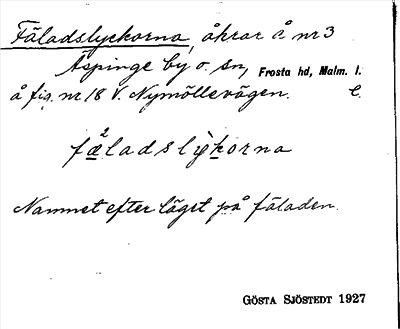 Fäladslyckorna, åkrar å nr 3
Äspinge by o. sn, Frosta hd, Malm. l.
å fig. nr 18 V. Nymöllevägen. C.
fæ²ladslỳkorna
Namnet efter läget på fäladen.
GÖSTA SJÖSTEDT 1927